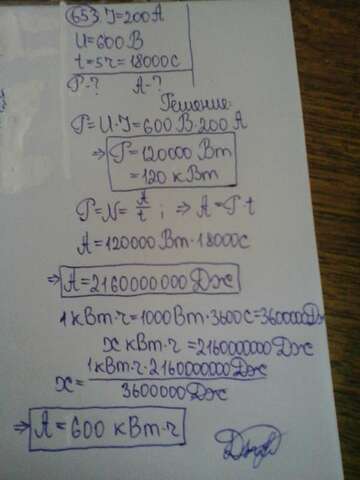 653 I=200A
U=600 В
t=5ч=18000с
P-? A-?
Решение:
P=U·I=600 В·200 A
⇒ P=120000 Вт
=120 кВт
P=N=A/t; ⇒ A=P·t
A=120000 Вт·18000с
⇒ A=2160000000 Дж
1 кВт·ч=1000 Вт·3600с=3600000 Дж
x кВт·ч=2160000000 Дж
x= 1 кВт·ч·2160000000 Дж
3600000 Дж
⇒ A=600 кВт·ч